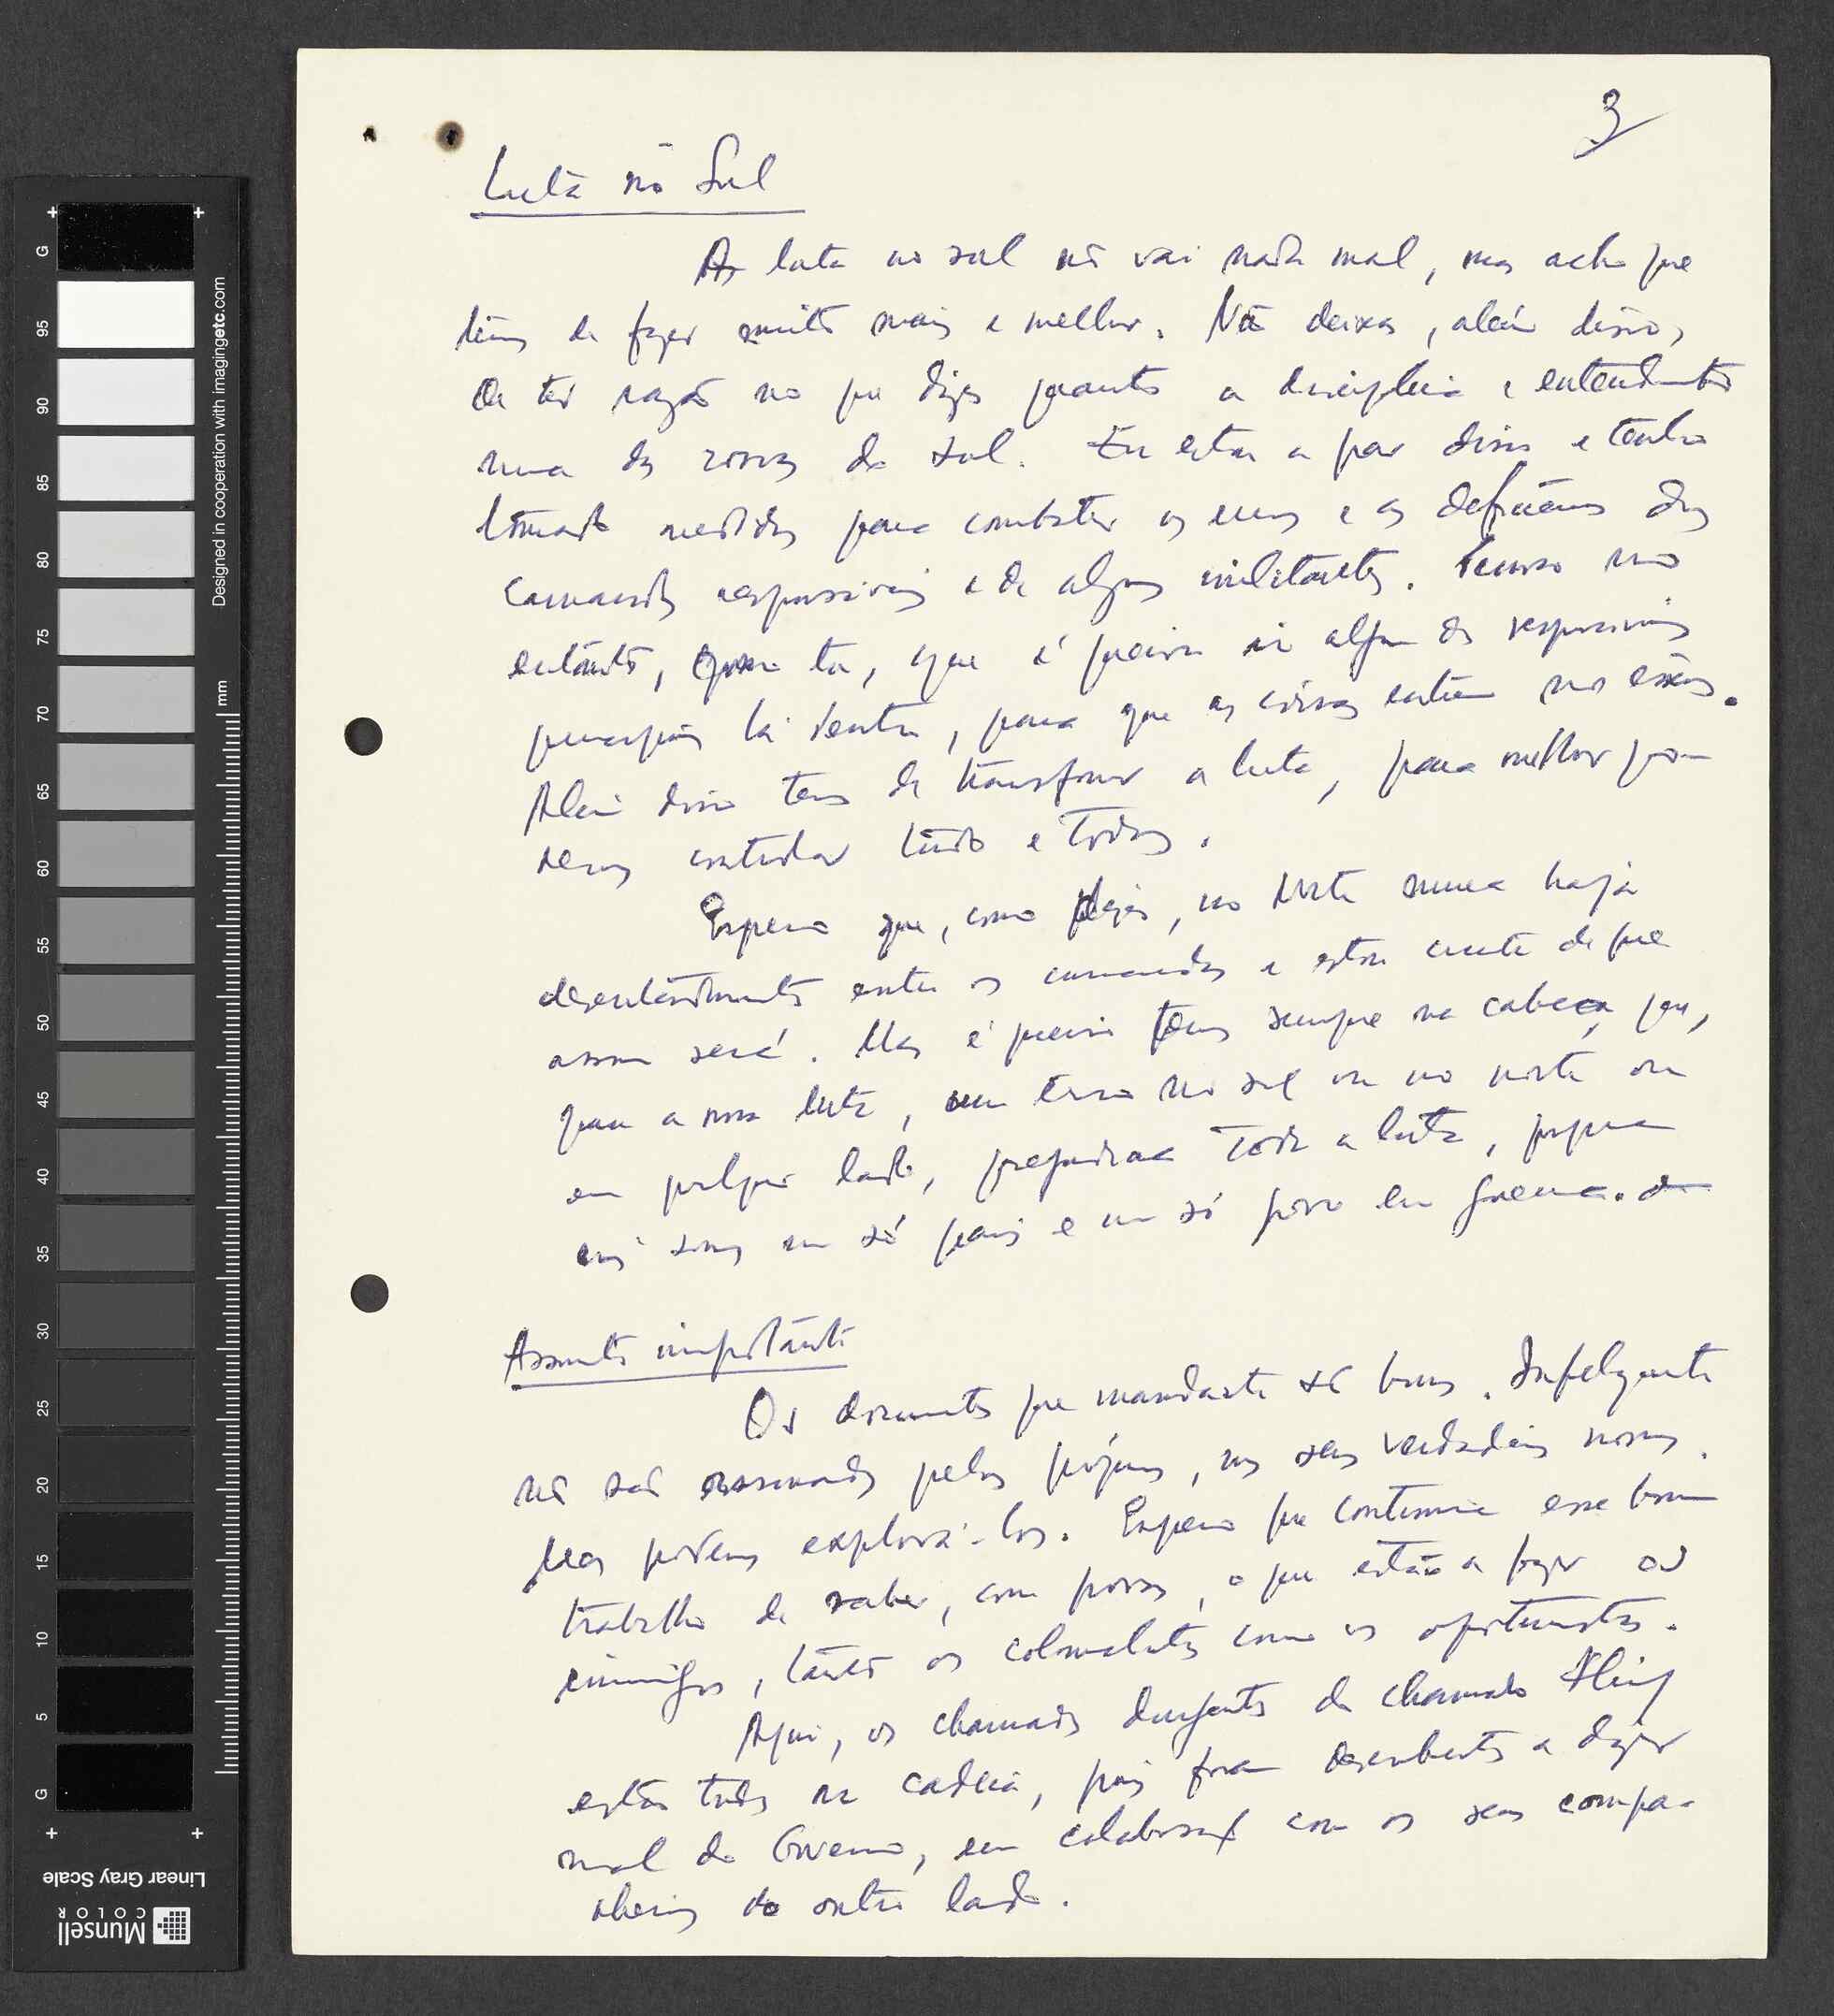 3
Luta no Sul
A luta no sul não vai nada mal, mas acho que
temos de fazer muito mais e melhor. Não deixas, além disso,
de ter razão no que dizes quanto a disciplina e entendimento
numa das zonas do sul. Eu estou a par disso e tenho
tomado medidas para combater os erros e as deficiências dos
camaradas responsáveis e de alguns militantes. Penso no
entanto, como tu, que é preciso ir algum dos responsáveis
principais lá dentro, para que as coisas entrem nos eixos.
Além disso temos de transformar a luta, para melhor po-
demos controlar tudo e todos.
Espero que, como dizes, no Norte nunca haja
desentendimento entre os camaradas e estou crente de que
assim será. Mas é preciso termos sempre na cabeça que,
para a nossa luta, um erro no sul ou no norte ou
em qualquer lado, prejudica toda a luta, porque
nós somos um só país e um só povo em guerra.
Assunto importante
Os documentos que mandaste são bons. Infelizmente
não são assinados pelos próprios, nos seus verdadeiros nomes.
Mas podemos explorá-los. Espero que continue esse bom
trabalho de saber, com provas, o que estão a fazer os
inimigos, tanto os colonialistas como os oportunistas.
Aqui, os chamados dirigentes do chamado Fling
estão todos na cadeia, pois foram descobertos a dizer
mal do Governo, em colaboração com os seus compa-
nheiros do outro lado.
Designed in cooperation with imagingetc.com
mm
G 95 90 85 80 75 70 65 60 55 50 45 40 35 30 25 20 15 10 5 G
Linear Gray Scale
Munsell
COLOR